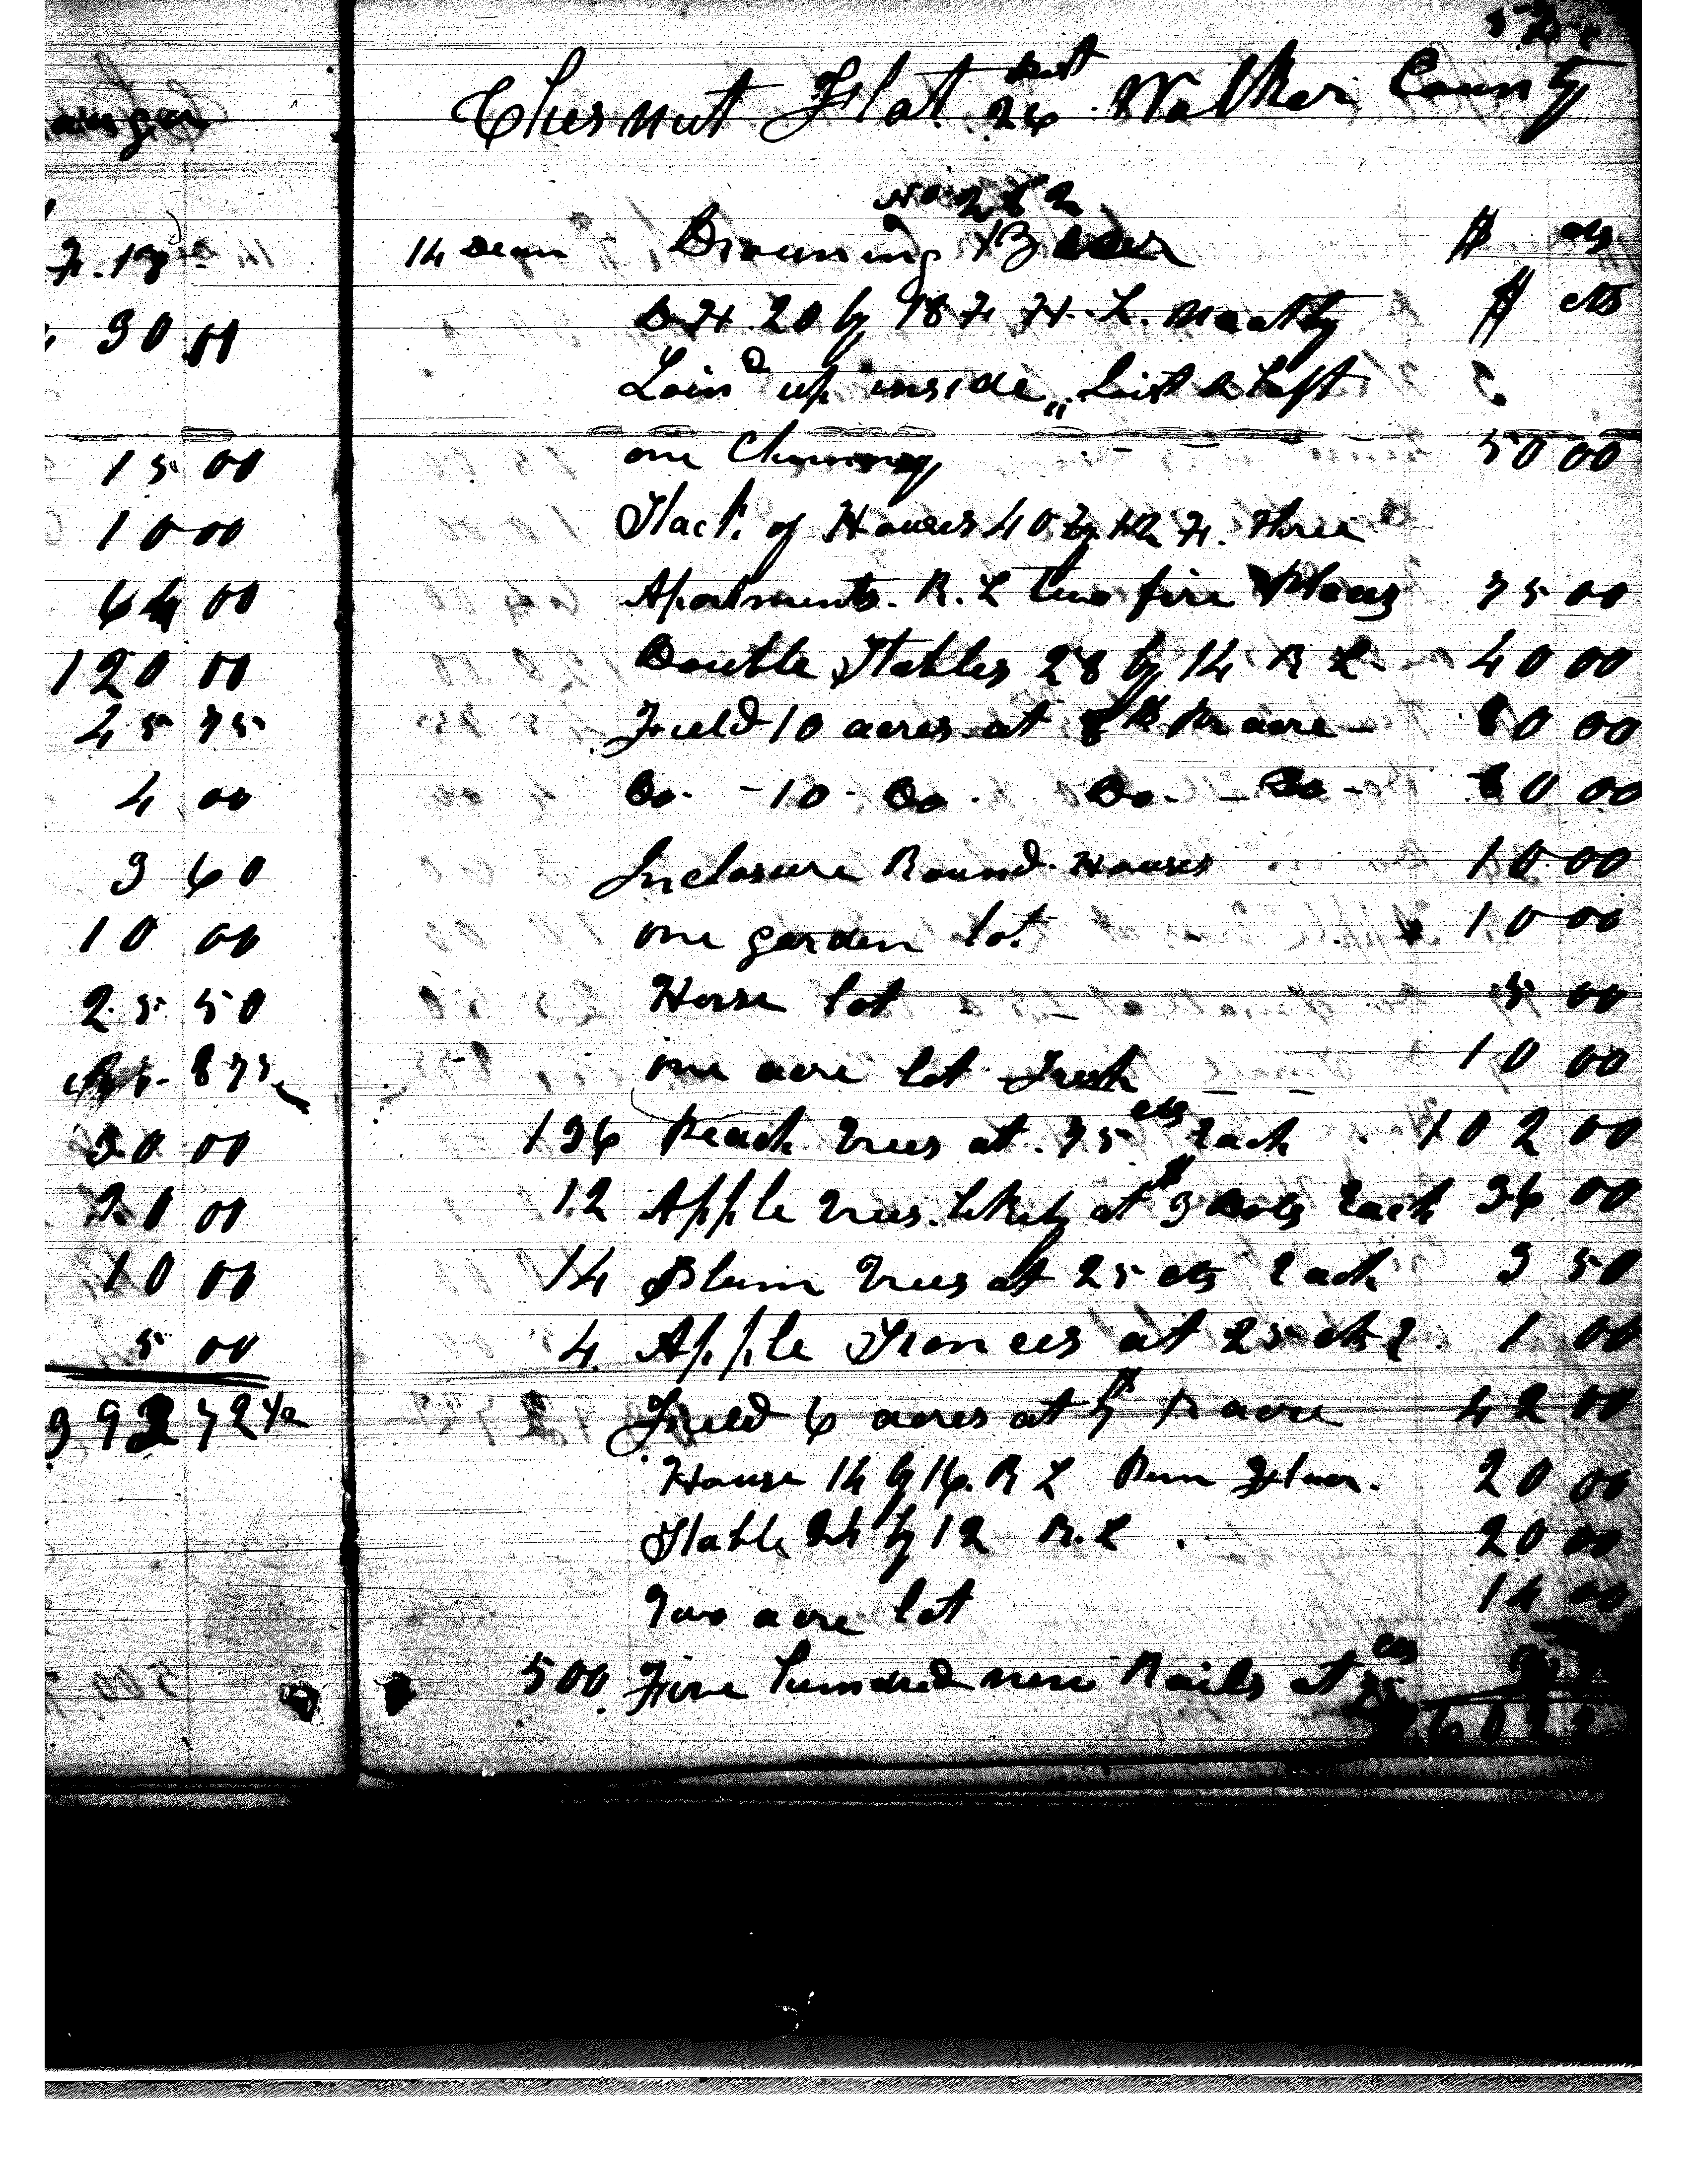 Chesnut Flat Dist 26 Walker County
No 262
14 Decm Drowning Bear $ cts
D. H. 20 by 18 Ft H. L. neatly $ cts
Loin'd up inside, Loist & Loft
one Chimney 50 00
Stack of Houses 40 by 12 Ft. three
Apartments. R. L two fire Places 75 00
Double Stables 28 by 14 R L 40 00
Field 10 acres at 8$ Pr acre 80 00
Do. 10 Do. Do. Do 80 00
Inclosure Round Houses 10 00
one garden lot 10 00
Horse lot 5 00
one acre lot Fresh 10 00
136 Peach trees at 75 cts Each 102 00
12 Apple trees likely at $3 Dols Each 36 00
14 Plum trees at 25 cts Each 3 50
4 Apple at 25 cts E. 1 00
Field 6 acres at 7$ Pr acre 42 00
House 14 by 16. R L Pun Floor. 20 00
Stable 24 by 12 R. L 20 00
Two acre lot 14 00
500 Five hundred new Rails at cts
30 00
15 00
10 00
64 00
120 00
25 75
4 00
3 60
10 00
25 50
87½
30 00
20 00
10 00
5 00
392 72½